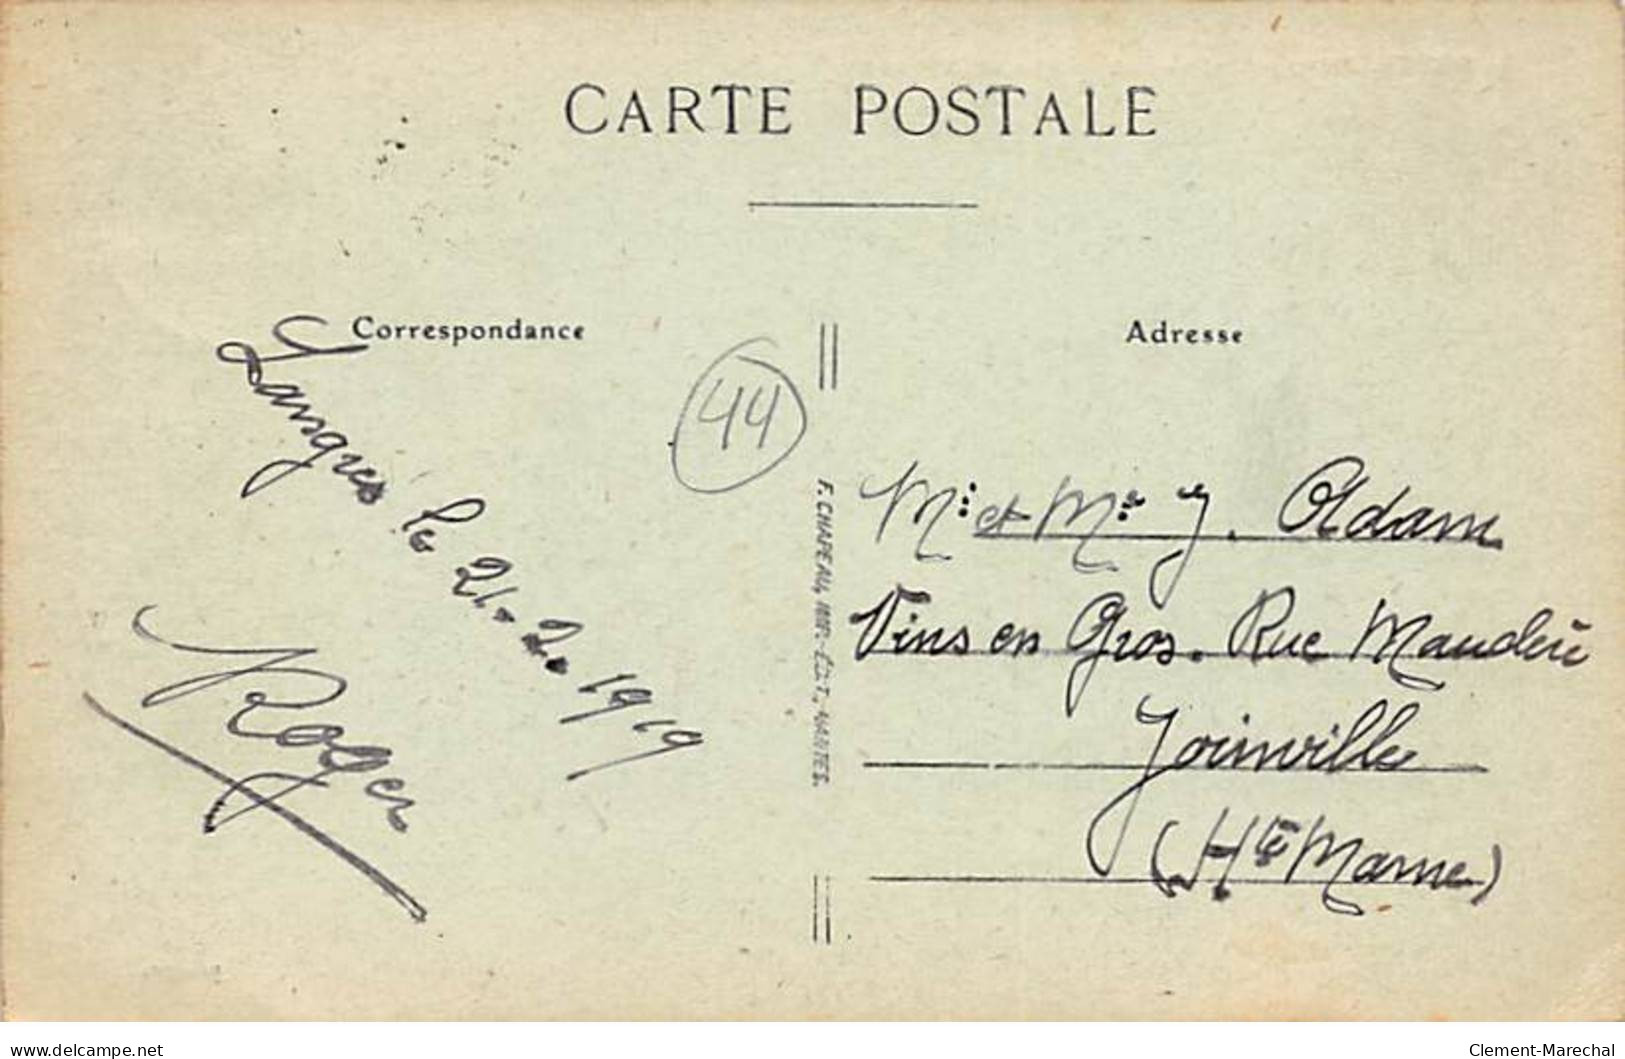 CARTE POSTALE
Correspondance
Adresse
44
Langres le 21-2-1919
Roger
F. CHAPEAU, IMP.-ÉDIT., NANTES.
Mr et Me J. Adam
Vins en Gros. Rue Maudière
Joinville
(Hte Marne)
delcampe.net
Clement-Marechal